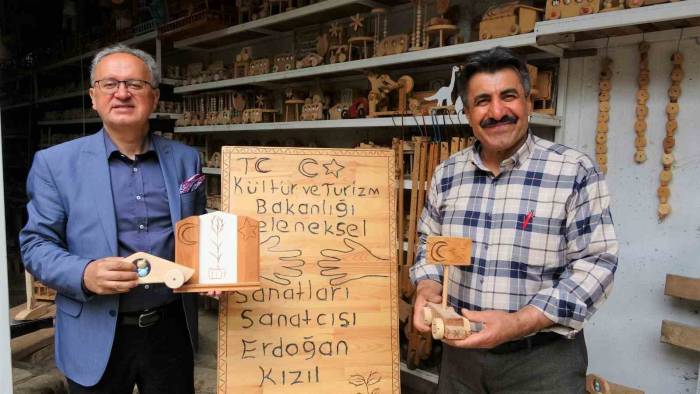 TC
Kültür ve Turizm
Bakanlığı
eleneksel
Sanatları
Sanatçısı
Erdoğan
Kızıl